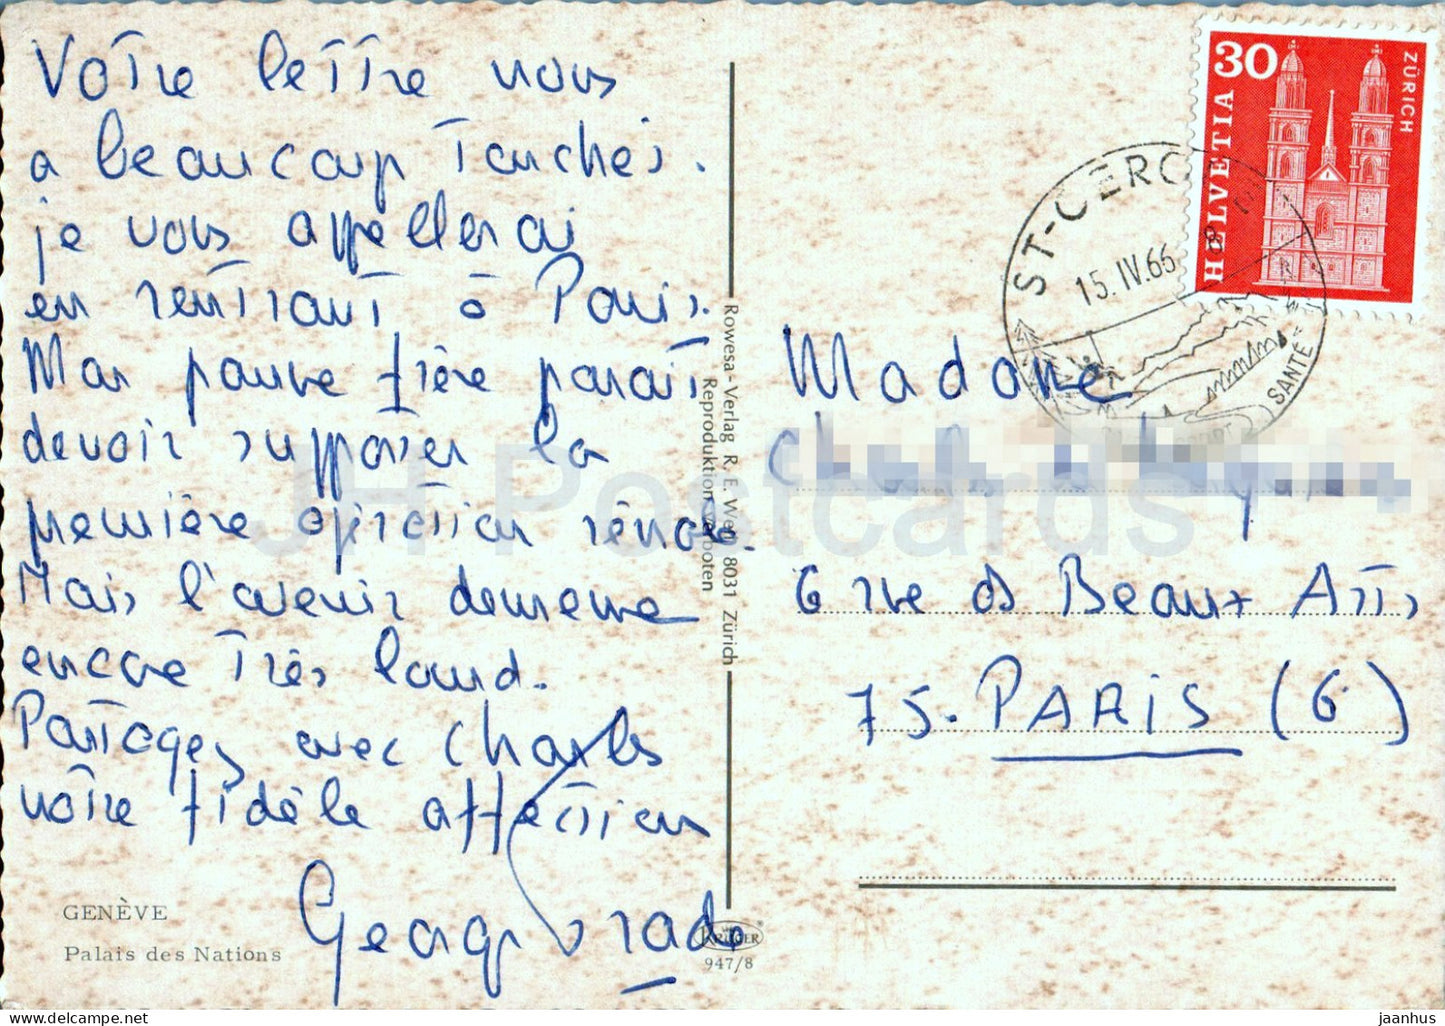 Votre lettre nous
a beaucoup touchés.
je vous appellerai
en rentrant à Paris.
Mon pauvre frère paraît
devoir supposer la
première opération rénale.
Mais l'avenir demeure
encore très lourd.
Partagez avec Charles
notre fidèle affection
GENÈVE
Palais des Nations
Rowesa-Verlag R. E. 8031 Zürich
Reproduktion verboten
KRÜGER
947/8
30
HELVETIA
ZÜRICH
ST-CERG
15.IV.66
8
SANTÉ
SPORT
Madame
6 rue des Beaux Arts
75. PARIS (6)
JH Postcards
jaanhus.myshopify.com